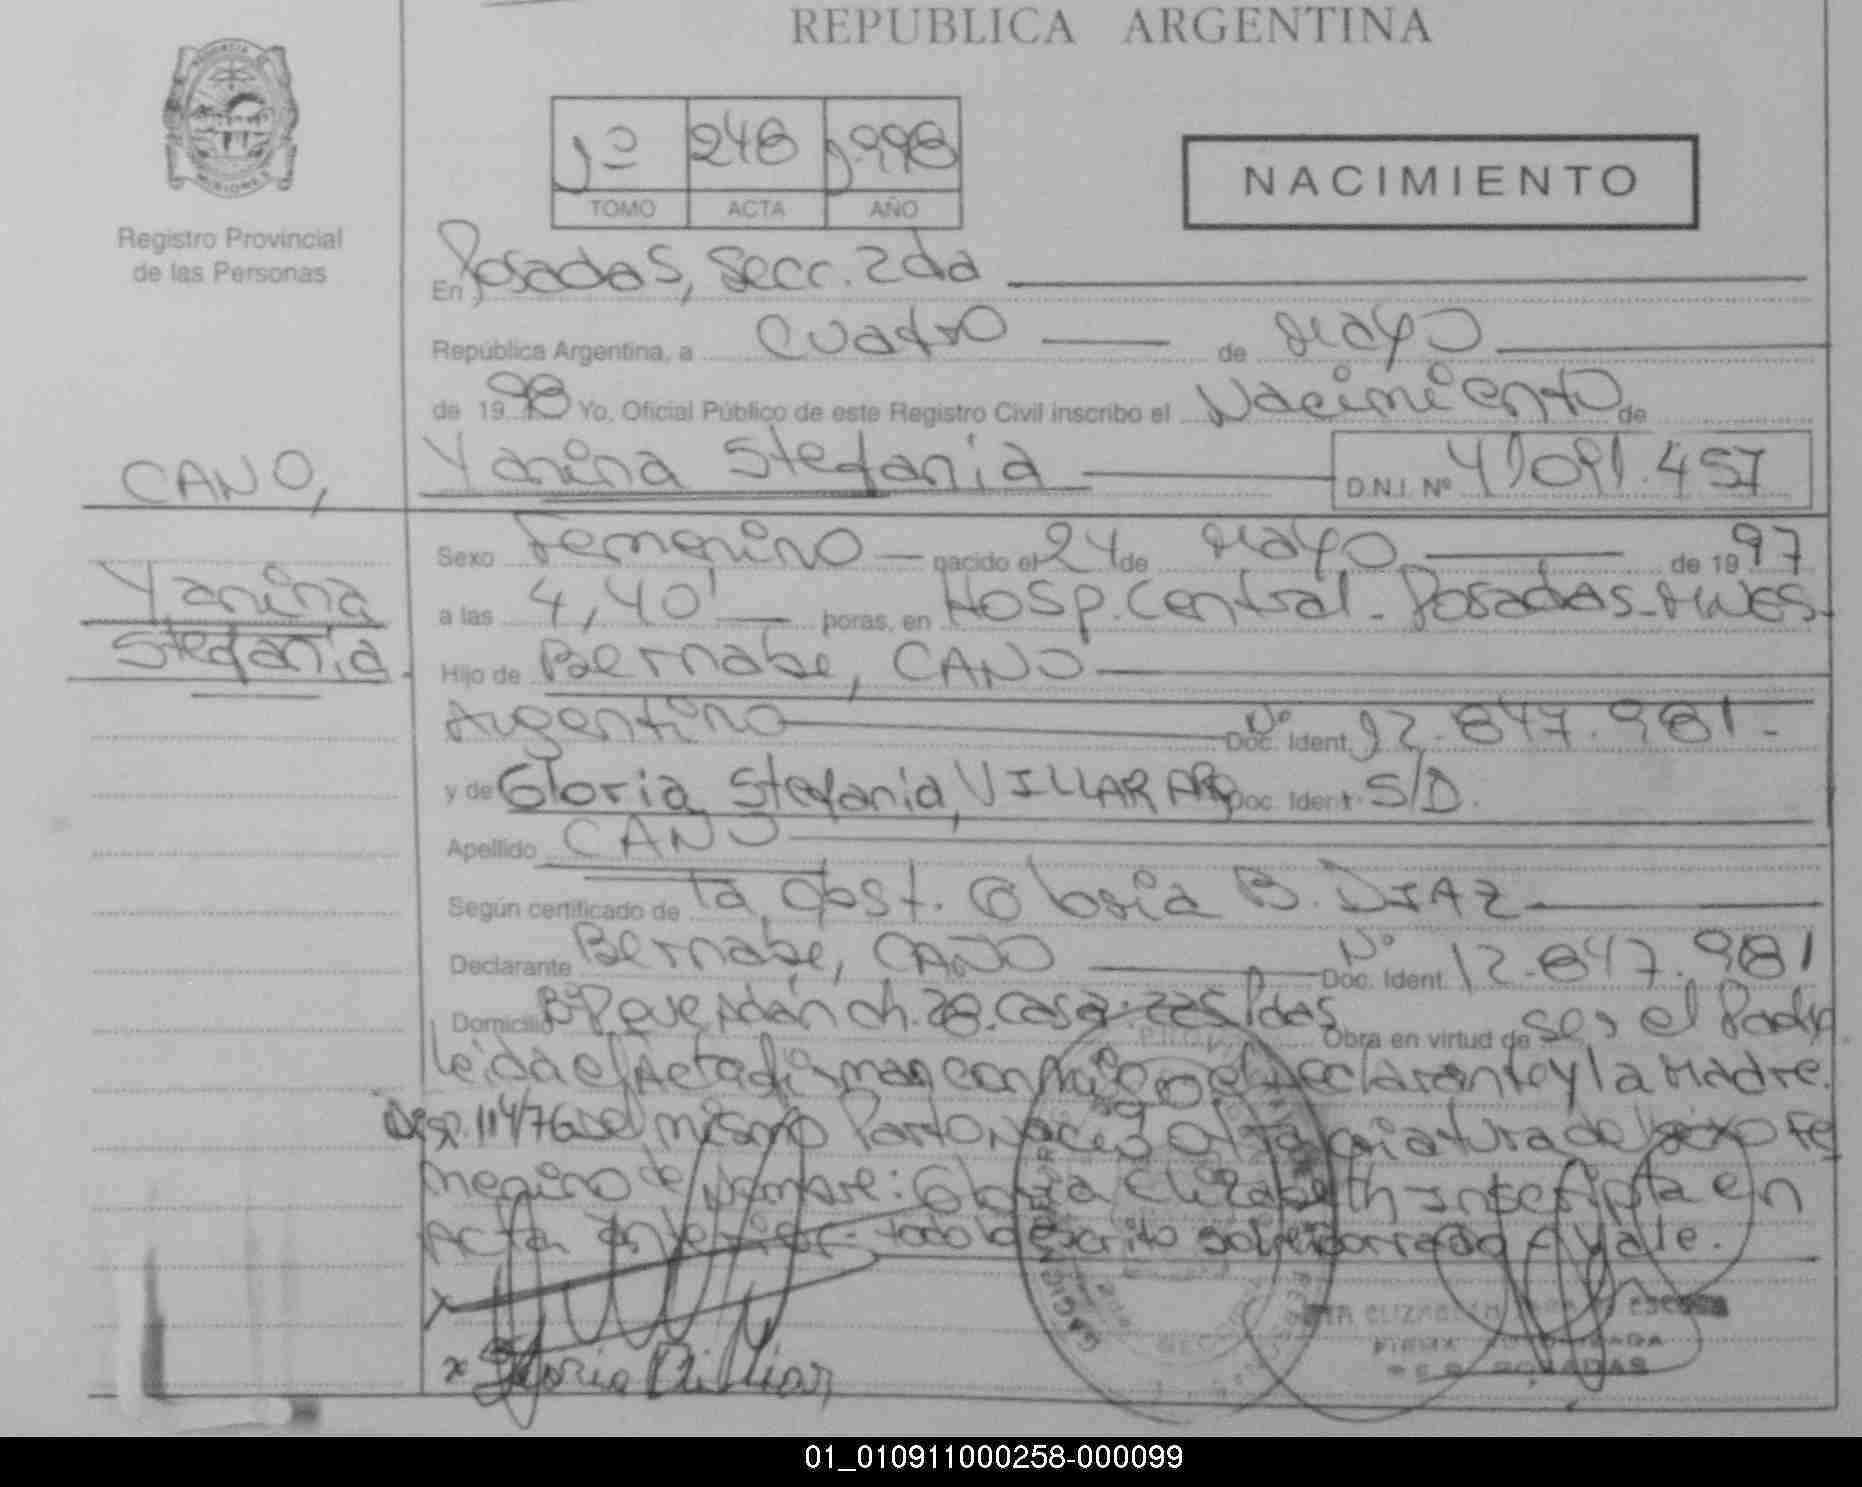 REPUBLICA ARGENTINA
PROVINCIA
MISIONES
Registro Provincial
de las Personas
1º 248 1.998
TOMO ACTA AÑO
NACIMIENTO
En Posadas, Secc. 2da
República Argentina, a cuatro de Mayo
de 1998 Yo, Oficial Público de este Registro Civil inscribo el Nacimiento de
CANO,
Yanina Stefania
D.N.I. Nº 41.091.457
Yanina
Stefania.
Sexo Femenino nacido el 24 de Mayo de 1997
a las 4,40' horas, en Hosp. Central - Posadas - Mnes.
Hijo de Bernabe, CANO
Argentino Nº Doc. Ident. 12.847.981.-
y de Gloria Stefania, VILLAR Doc. Ident. S/D.
Apellido CANO
Según certificado de la Obst. Gloria B. DIAZ
Declarante Bernabe, CANO Nº Doc. Ident. 12.847.981
Domicilio Bº ch. 28. casa. 225 Pdas Obra en virtud de Ser el Padre
leida el Acta firman conmigo el declarante y la Madre.
114/76 del mismo Parto Nació otra criatura de sexo Fe
menino de Nombre: Gloria Elizabeth Inscripta en
Acta anterior. todo lo escrito sobre Vale.
x
x Gloria Villar
ELIZABETH
FIRMA
POSADAS
01_010911000258-000099